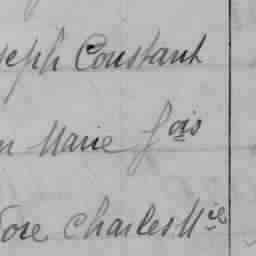 seph Constant
n Marie fois
ore Charles Mie